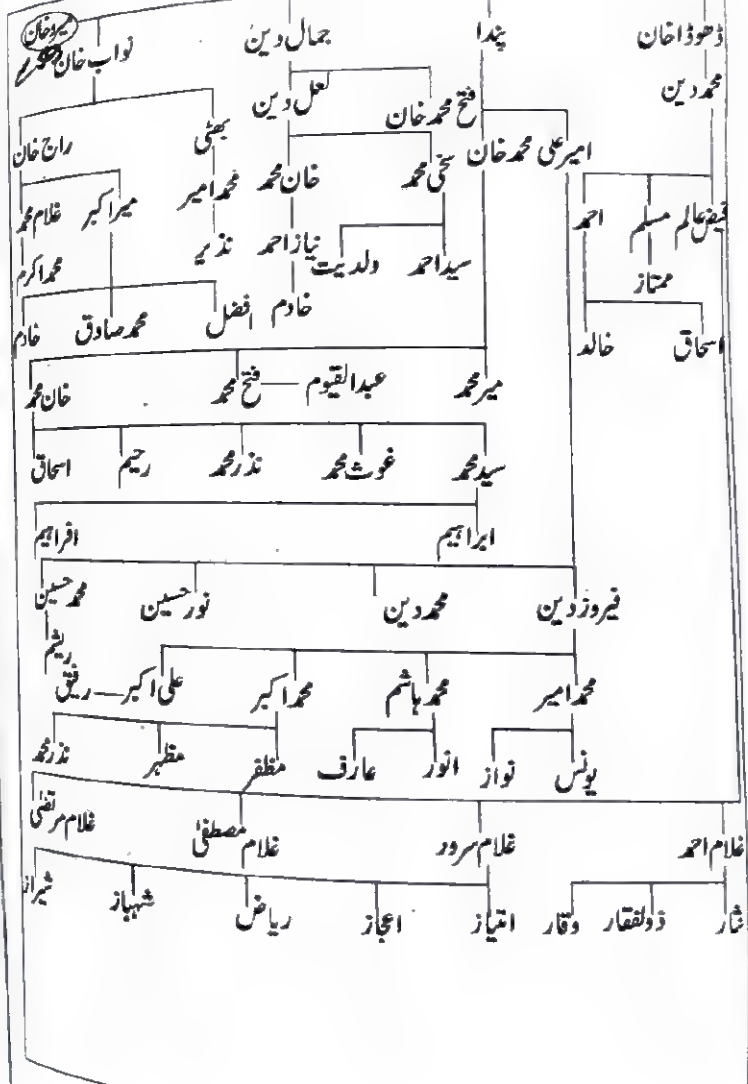 ڈھوڈا خان پندا جمال دین نواب خان
محمد دین
فتح محمد خان لعل دین
امیر علی محمد خان بھٹی راج خان
سخی محمد خان محمد محمد امیر میر اکبر غلام محمد
فیض عالم مسلم احمد
سید احمد ولدیت نیاز احمد نذیر محمد اکرم
ممتاز
خادم افضل محمد صادق خادم
اسحاق خالد
میر محمد عبدالقیوم — فتح محمد خان محمد
سید محمد غوث محمد نذر محمد رحیم اسحاق
ابراہیم افراہیم
فیروز دین محمد دین نور حسین محمد حسین
ریشم
محمد امیر محمد ہاشم محمد اکبر علی اکبر — رفیق
یونس نواز انور عارف مظفر مظہر نذر محمد
غلام احمد غلام سرور غلام مصطفیٰ غلام مرتضیٰ
نثار ذولفقار وقار امتیاز اعجاز ریاض شہباز شیراز